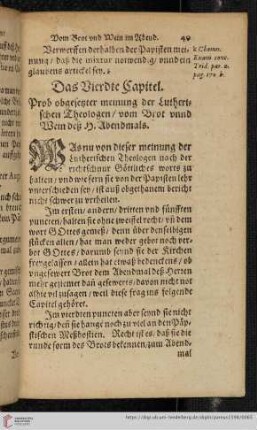 Vom Brot vnd Wein im Abend. 49
Verwerffen derhalben der Papisten mei-
nung / daß die mixtur notwendig / vnnd ein
glaubens artickel sey. k
k Chemn.
Exam. conc.
Trid. par. 2.
pag. 170. b.
Das Vierdte Capitel.
Prob obgesetzter meinung der Lutheri-
schen Theologen / vom Brot vnnd
Wein deß H. Abendmals.
WAs nu von dieser meinung der
Lutherischen Theologen nach der
richtschnur Göttliches worts zu
halten / vnd wie fern sie von der Papisten lehr
vnterschieden sey / ist auß obgethanem bericht
nicht schwer zu vrtheilen.
Im ersten / andern / dritten vnd fünfften
puncten / halten sie ohne zweiffel recht / vñ dem
wort GOttes gemeß / denn über denselbigen
stücken allen / hat man weder gebot noch ver-
bot GOttes / darumb seynd sie der Kirchen
freygelassen / allein hat etwaß bedenckens / ob
vngesewert Brot dem Abendmal deß HErren
mehr geziemet dañ gesewerts / davon nicht not
allhie vil zusagen / weil diese frag ins folgende
Capitel gehöret.
Im vierdten puncten aber seynd sie nicht
richtig / deñ sie hangē noch zu viel an den Päp-
stischen Meßhostien. Recht ist es, daß sie die
runde form des Brots bekennen, zum Abend-
mal